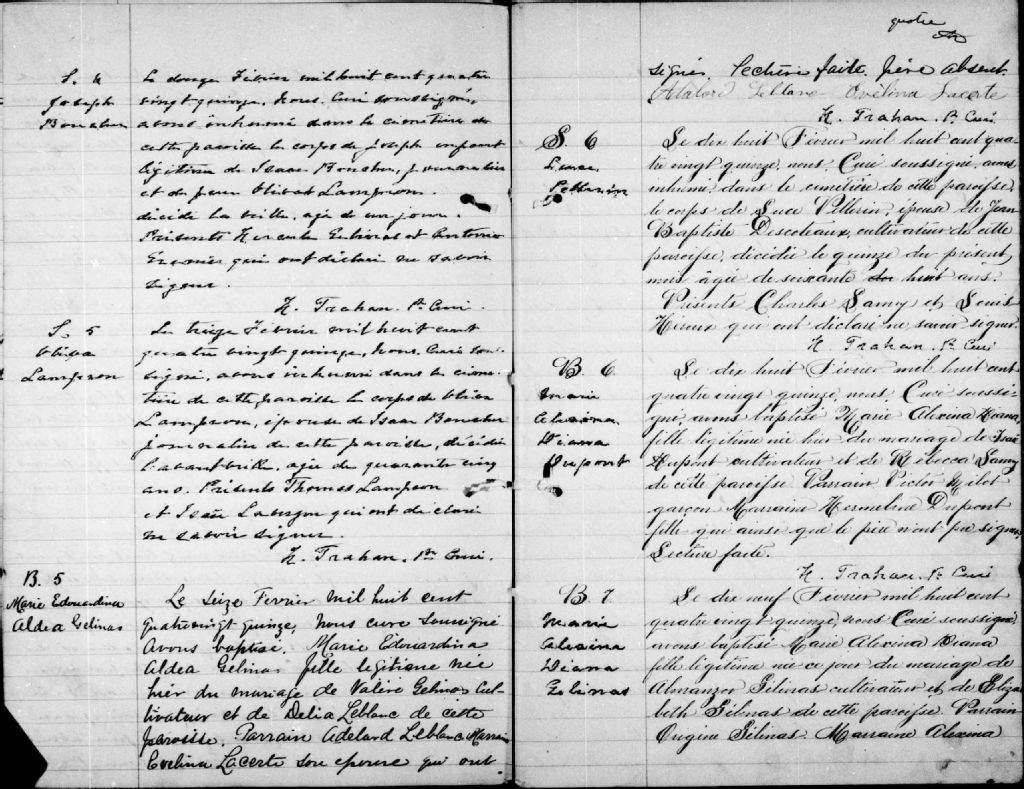 S. 4
Joseph
Boucher
Le douze Février mil huit cent quatre
vingt quinze, Nous, Curé soussigné,
avons inhumé dans le cimetière de
cette paroisse le corps de Joseph enfant
légitime de Isaac Boucher, journalier
et de feue Oliva Lampron.
décédé la veille, agé de un jour.
Présents Hercule Gelinas et Antonio
qui ont déclaré ne savoir
signer.
H. Trahan. Ptre Curé.
S. 5
Oliva
Lampron
Le treize Février mil huit cent
quatre vingt quinze, Nous, Curé sous
signé, avons inhumé dans le cime-
tière de cette paroisse le corps de Oliva
Lampron, épouse de Isaac Boucher
journalier de cette paroisse, décédée
l'avant veille, agée de quarante cinq
ans. Présents Thomas Lampron
et Isaïe qui ont déclaré
ne savoir signer.
H. Trahan. Ptre Curé.
B. 5
Marie Edouardina
Aldea Gelinas
Le Seize Fevrier mil huit cent
quatrevingt quinze, Nous curé soussigné
Avons baptisé. Marie Edouardina
Aldea Gelinas fille legitime née
hier du mariage de Valère Gelinas Cul-
tivateur et de Delia Leblanc de cette
paroisse. Parrain Adelard Leblanc Marraine
Evelina Lacerte son epouse qui ont
quatre
signés. Lecture faite. père absent.
Adélard Leblanc Ovélina Lacerte
H. Trahan. Ptre Curé
S. 6
Luce
Pellerin
Le dix huit Février mil huit cent qua-
tre vingt quinze, nous Curé soussigné avons
inhumé dans le cimetière de cette paroisse
le corps de Luce Pellerin, épouse de Jean
Baptiste Descoteaux, cultivateur de cette
paroisse, décédée le quinze du présent
mois âgée de soixante dix huit ans.
Présents Charles Lamy et Louis
Héroux qui ont déclaré ne savoir signer.
H. Trahan. Ptre Curé
B. 6
Marie
Alexina
Diana
Dupont
Le dix huit Février mil huit cent
quatre vingt quinze, nous Curé soussi-
gné, avons baptisé Marie Alexina Diana,
fille légitime née hier du mariage de Isaïe
Dupont cultivateur et de Rébecca Lamy
de cette paroisse Parrain Victor Milot
garçon Marraine Hermeline Dupont
fille qui ainsi que le père n'ont pu signer
Lecture faite.
H. Trahan. Ptre Curé
B. 7
Marie
Alexina
Diana
Gelinas
Le dix neuf Février mil huit cent
quatre vingt quinze, nous Curé soussigné
avons baptisé Marie Alexina Diana
fille légitime née ce jour du mariage de
Almanzor Gélinas cultivateur et de Eliza
beth Gélinas de cette paroisse Parrain
Eugène Gélinas Marraine Alexina